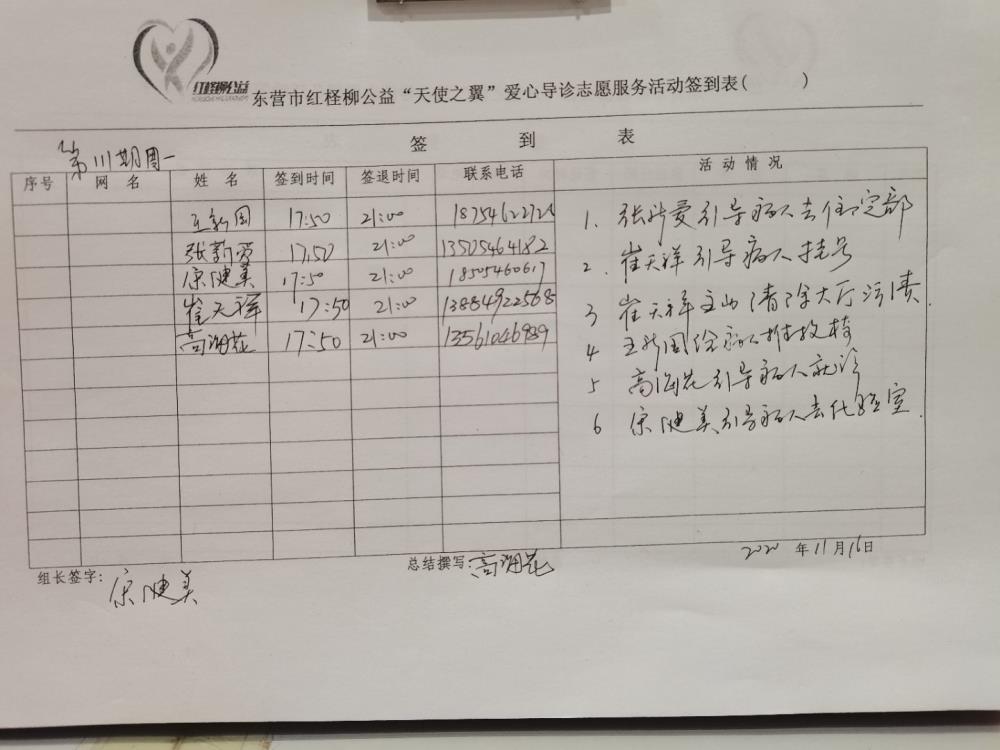 红柽柳公益
东营市红柽柳公益“天使之翼”爱心导诊志愿服务活动签到表( )
签 到 表
第111期周一
序号 网 名 姓 名 签到时间 签退时间 联系电话 活 动 情 况
王新国 17:50 21:00 18754622728
张新爱 17:50 21:00 13505464182
宋健美 17:50 21:00 18505460617
崔天祥 17:50 21:00 13884922568
高海花 17:50 21:00 13561046989
1. 张新爱引导病人去住院部
2. 崔天祥引导病人挂号
3 崔天祥主动清除大厅污渍.
4 王新国给病人推轮椅
5 高海花引导病人就诊
6 宋健美引导病人去化验室.
2020 年11月16日
组长签字: 宋健美
总结撰写:高海花